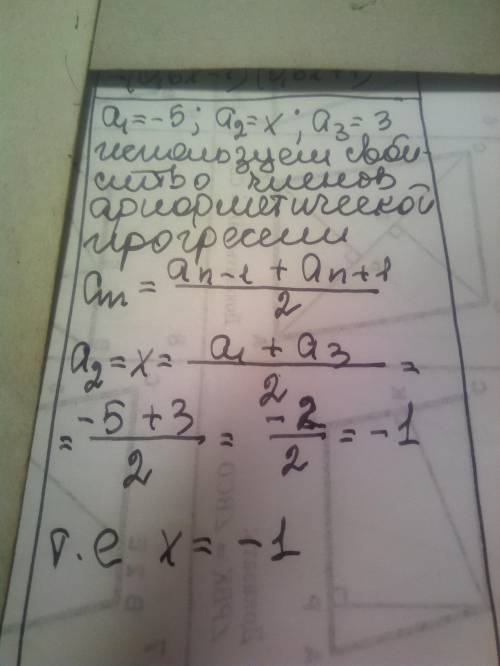 a₁ = -5; a₂ = x; a₃ = 3
используем свой-
ство членов
арифметической
прогрессии
aₙ = (aₙ₋₁ + aₙ₊₁) / 2
a₂ = x = (a₁ + a₃) / 2 =
= (-5 + 3) / 2 = -2 / 2 = -1
т.е x = -1